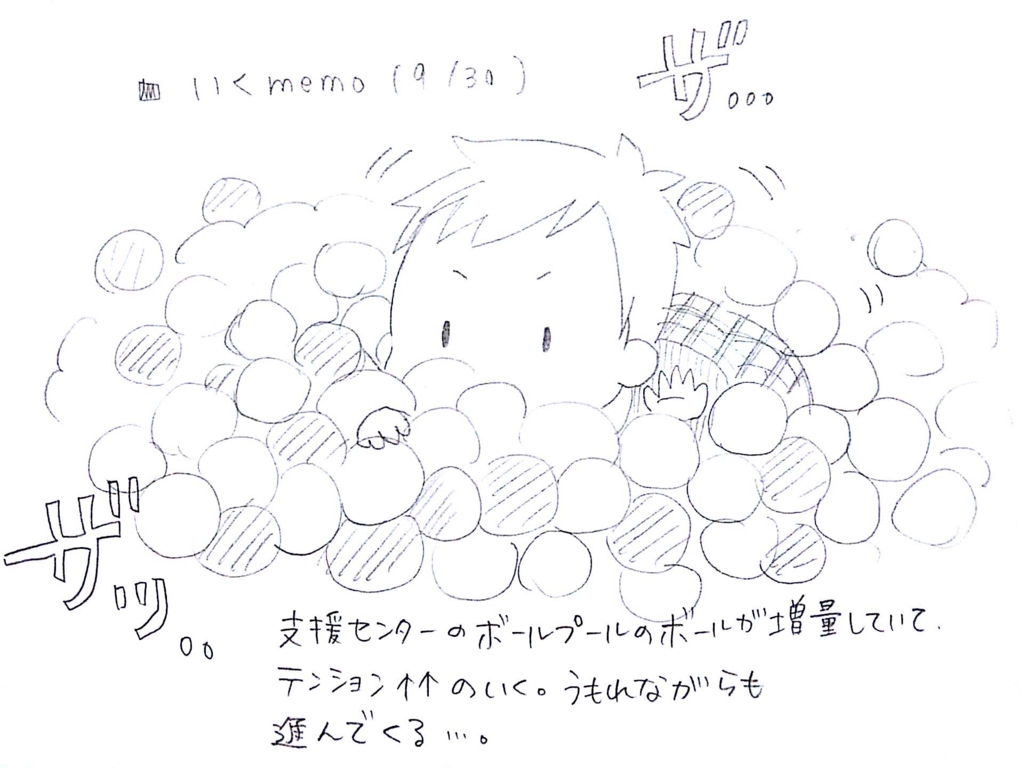 ■ いくmemo (9/30)
ザ。。。
ザッ。。
支援センターのボールプールのボールが増量していて、
テンション↑↑のいく。うもれながらも
進んでくる…。